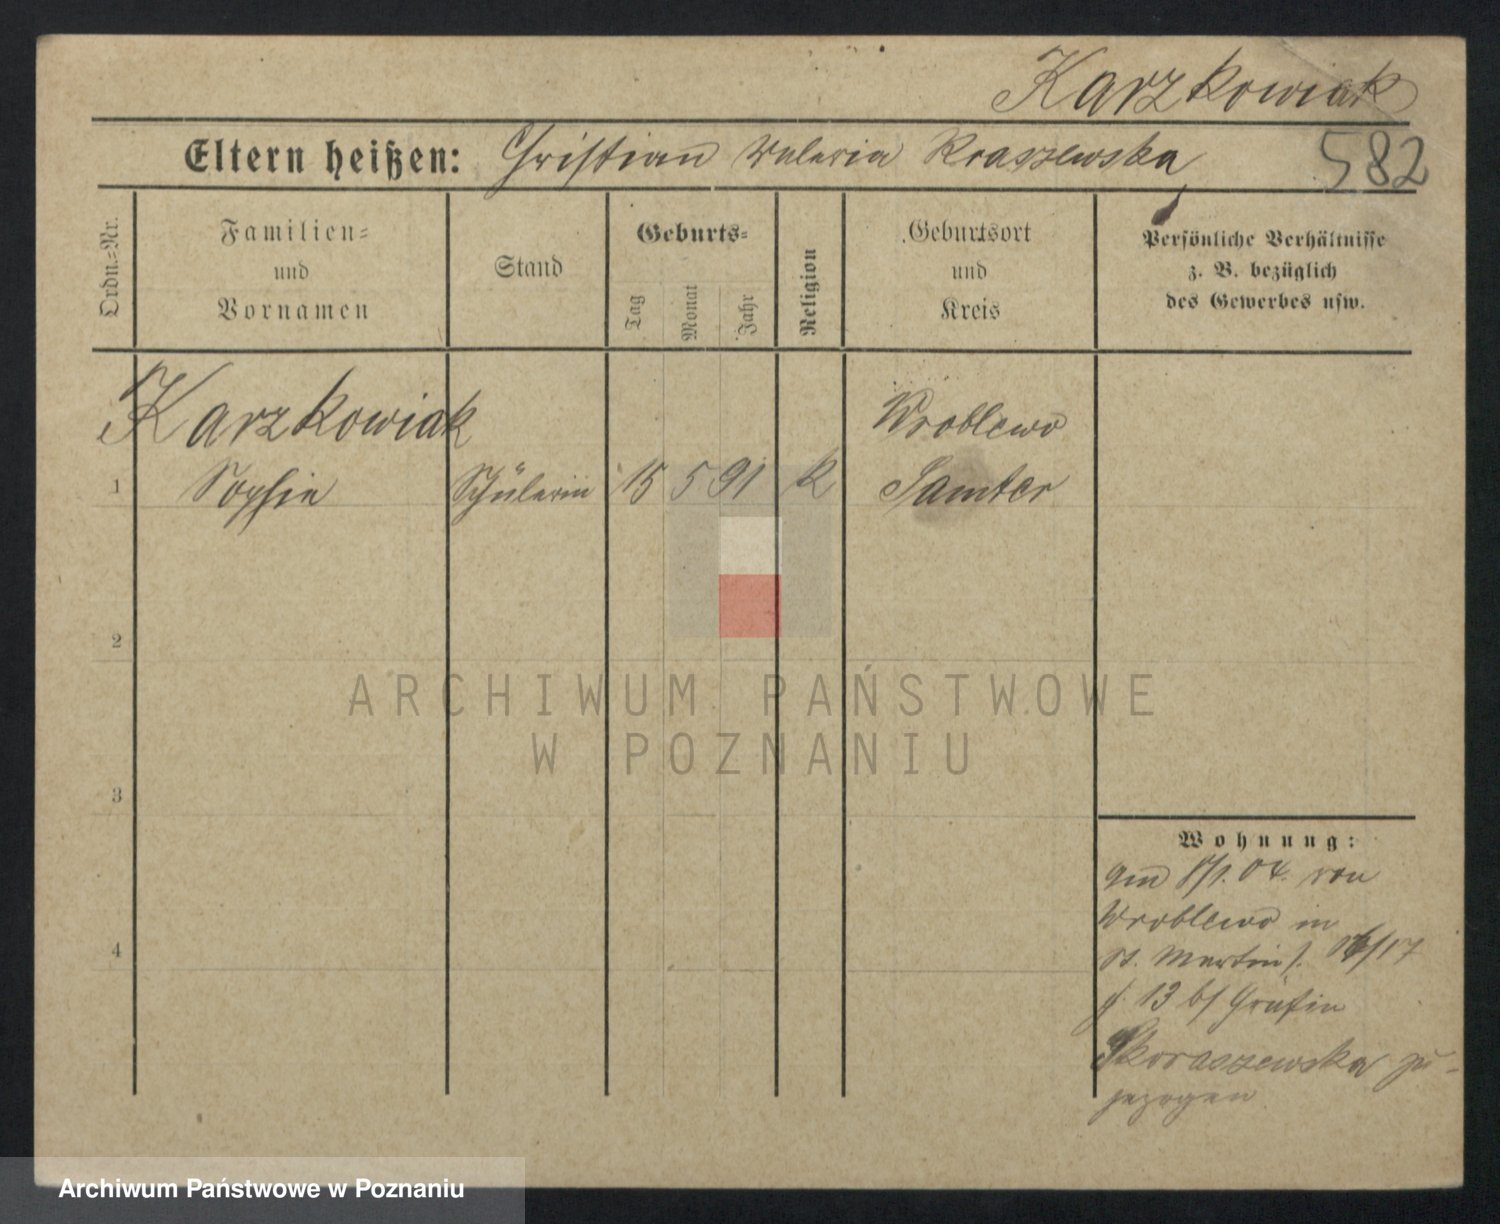 Karzkowiak
Eltern heißen: Christian Valeria Kraszewska
582
Ordn.=Nr.
Familien=
und
Vornamen
Stand
Geburts=
Tag
Monat
Jahr
Religion
Geburtsort
und
Kreis
Persönliche Verhältnisse
z. B. bezüglich
des Gewerbes usw.
Karzkowiak
Wroblewo
1 Sophie Schülerin 15 5 91 K Samter
2
ARCHIWUM PAŃSTWOWE
W POZNANIU
3
Wohnung:
8/1. 04. von
Wroblewo in
4
St. Martin 16/17
13 b/ Gräfin
Skoraszewska zu-
gezogen
Archiwum Państwowe w Poznaniu